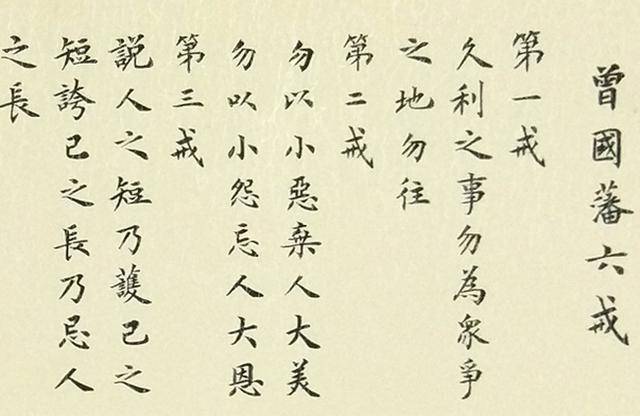 曾國藩六戒
第一戒
久利之事勿為眾爭
之地勿往
第二戒
勿以小惡棄人大美
勿以小怨忘人大恩
第三戒
説人之短乃護己之
短誇己之長乃忌人
之長